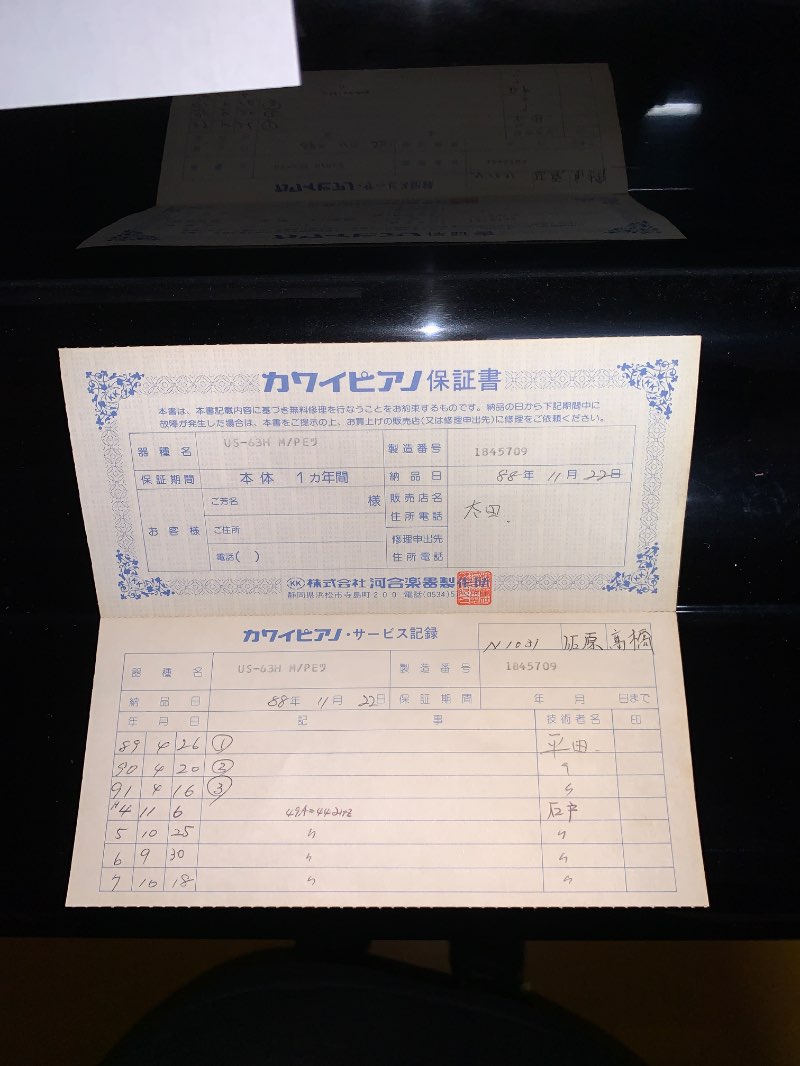 カワイピアノ 保証書
本書は、本書記載内容に基づき無料修理を行なうことをお約束するものです。納品の日から下記期間中に
故障が発生した場合は、本書をご提示の上、お買上げの販売店(又は修理申出先)に修理をご依頼ください。
器種名 US-63H M/PEウ 製造番号 1845709
保証期間 本体 1カ年間 納品日 88年 11月 22日
お客様 ご芳名 様 販売店名 住所電話 太田.
ご住所
電話( ) 修理申出先 住所電話
KK 株式会社 河合楽器製作所
静岡県浜松市寺島町200 電話(0534)5
カワイピアノ・サービス記録 N1031 高橋
器種名 US-63H M/PEウ 製造番号 1845709
納品日 88年 11月 22日 保証期間 年 月 日まで
年月日 記事 技術者名 印
89 4 26 ① 平田.
90 4 20 ② 〃
91 4 16 ③ 〃
H4 11 6 49A=442Hz 石戸
5 10 25 〃 〃
6 9 30 〃 〃
7 10 18 〃 〃